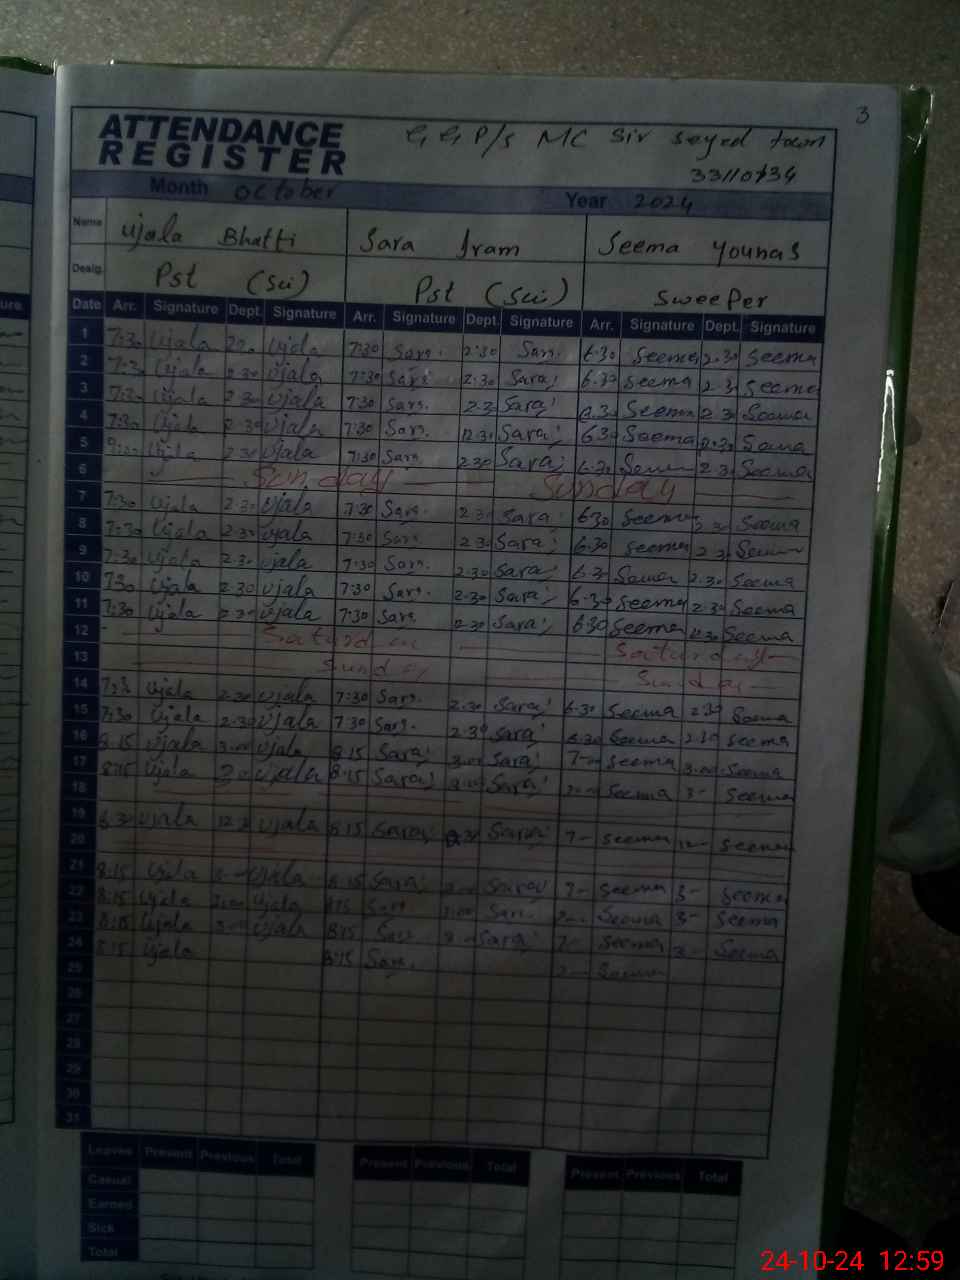 3
ATTENDANCE REGISTER
G, G, P/s MC Sir seyed town
Month October Year 2024
Name Ujala Bhatti Sara Iram Seema Younas
Desig. Pst (Sci) Pst (Sci) Sweeper
Date Arr. Signature Dept. Signature Arr. Signature Dept. Signature Arr. Signature Dept. Signature
1 7:30 Ujala Ujala 7:30 Sara 2:30 Sara 6:30 Seema 2:30 Seema
2 7:30 Ujala 2:30 Ujala 7:30 Sara 2:30 Sara 6:30 Seema 2:30 Seema
3 7:30 Ujala 2:30 Ujala 7:30 Sara 2:30 Sara 6:30 Seema 2:30 Seema
4 7:30 Ujala 2:30 Ujala 7:30 Sara 2:30 Sara 6:30 Seema 2:30 Seema
5 Ujala 2:30 Ujala 7:30 Sara 2:30 Sara 6:30 Seema 2:30 Seema
6 Sunday Sunday
7 7:30 Ujala 2:30 Ujala 7:30 Sara 2:30 Sara 6:30 Seema 2:30 Seema
8 7:30 Ujala 2:30 Ujala 7:30 Sara 2:30 Sara 6:30 Seema 2:30 Seema
9 7:30 Ujala 2:30 Ujala 7:30 Sara 2:30 Sara 6:30 Seema 2:30 Seema
10 7:30 Ujala 2:30 Ujala 7:30 Sara 2:30 Sara 6:30 Seema 2:30 Seema
11 7:30 Ujala 2:30 Ujala 7:30 Sara 2:30 Sara 6:30 Seema 2:30 Seema
12 Saturday Saturday
13 Sunday Sunday
14 7:30 Ujala 2:30 Ujala 7:30 Sara 2:30 Sara 6:30 Seema 2:30 Seema
15 7:30 Ujala 2:30 Ujala 7:30 Sara 2:30 Sara 6:30 Seema 2:30 Seema
16 8:15 Ujala 3:00 Ujala 8:15 Sara 3:00 Sara 7-- Seema 3:00 Seema
17 8:15 Ujala 3:0 Ujala 8:15 Sara Sara Seema 3- Seema
18
19 Ujala 12:3 Ujala 8:15 Sara Sara 7- Seema 12- Seema
20
21 8:15 Ujala Ujala 8:15 Sara Sara 7- Seema 3- Seema
22 8:15 Ujala 3:00 Ujala 8:15 Sara 3:00 Sara Seema 3- Seema
23 8:15 Ujala Ujala 8:15 Sara Sara 7- Seema 3- Seema
24 8:15 Ujala 8:15 Sara Seema
25
26
27
28
29
30
31
Leaves Present Previous Total Present Previous Total Present Previous Total
Casual
Earned
Sick
Total
24-10-24 12:59